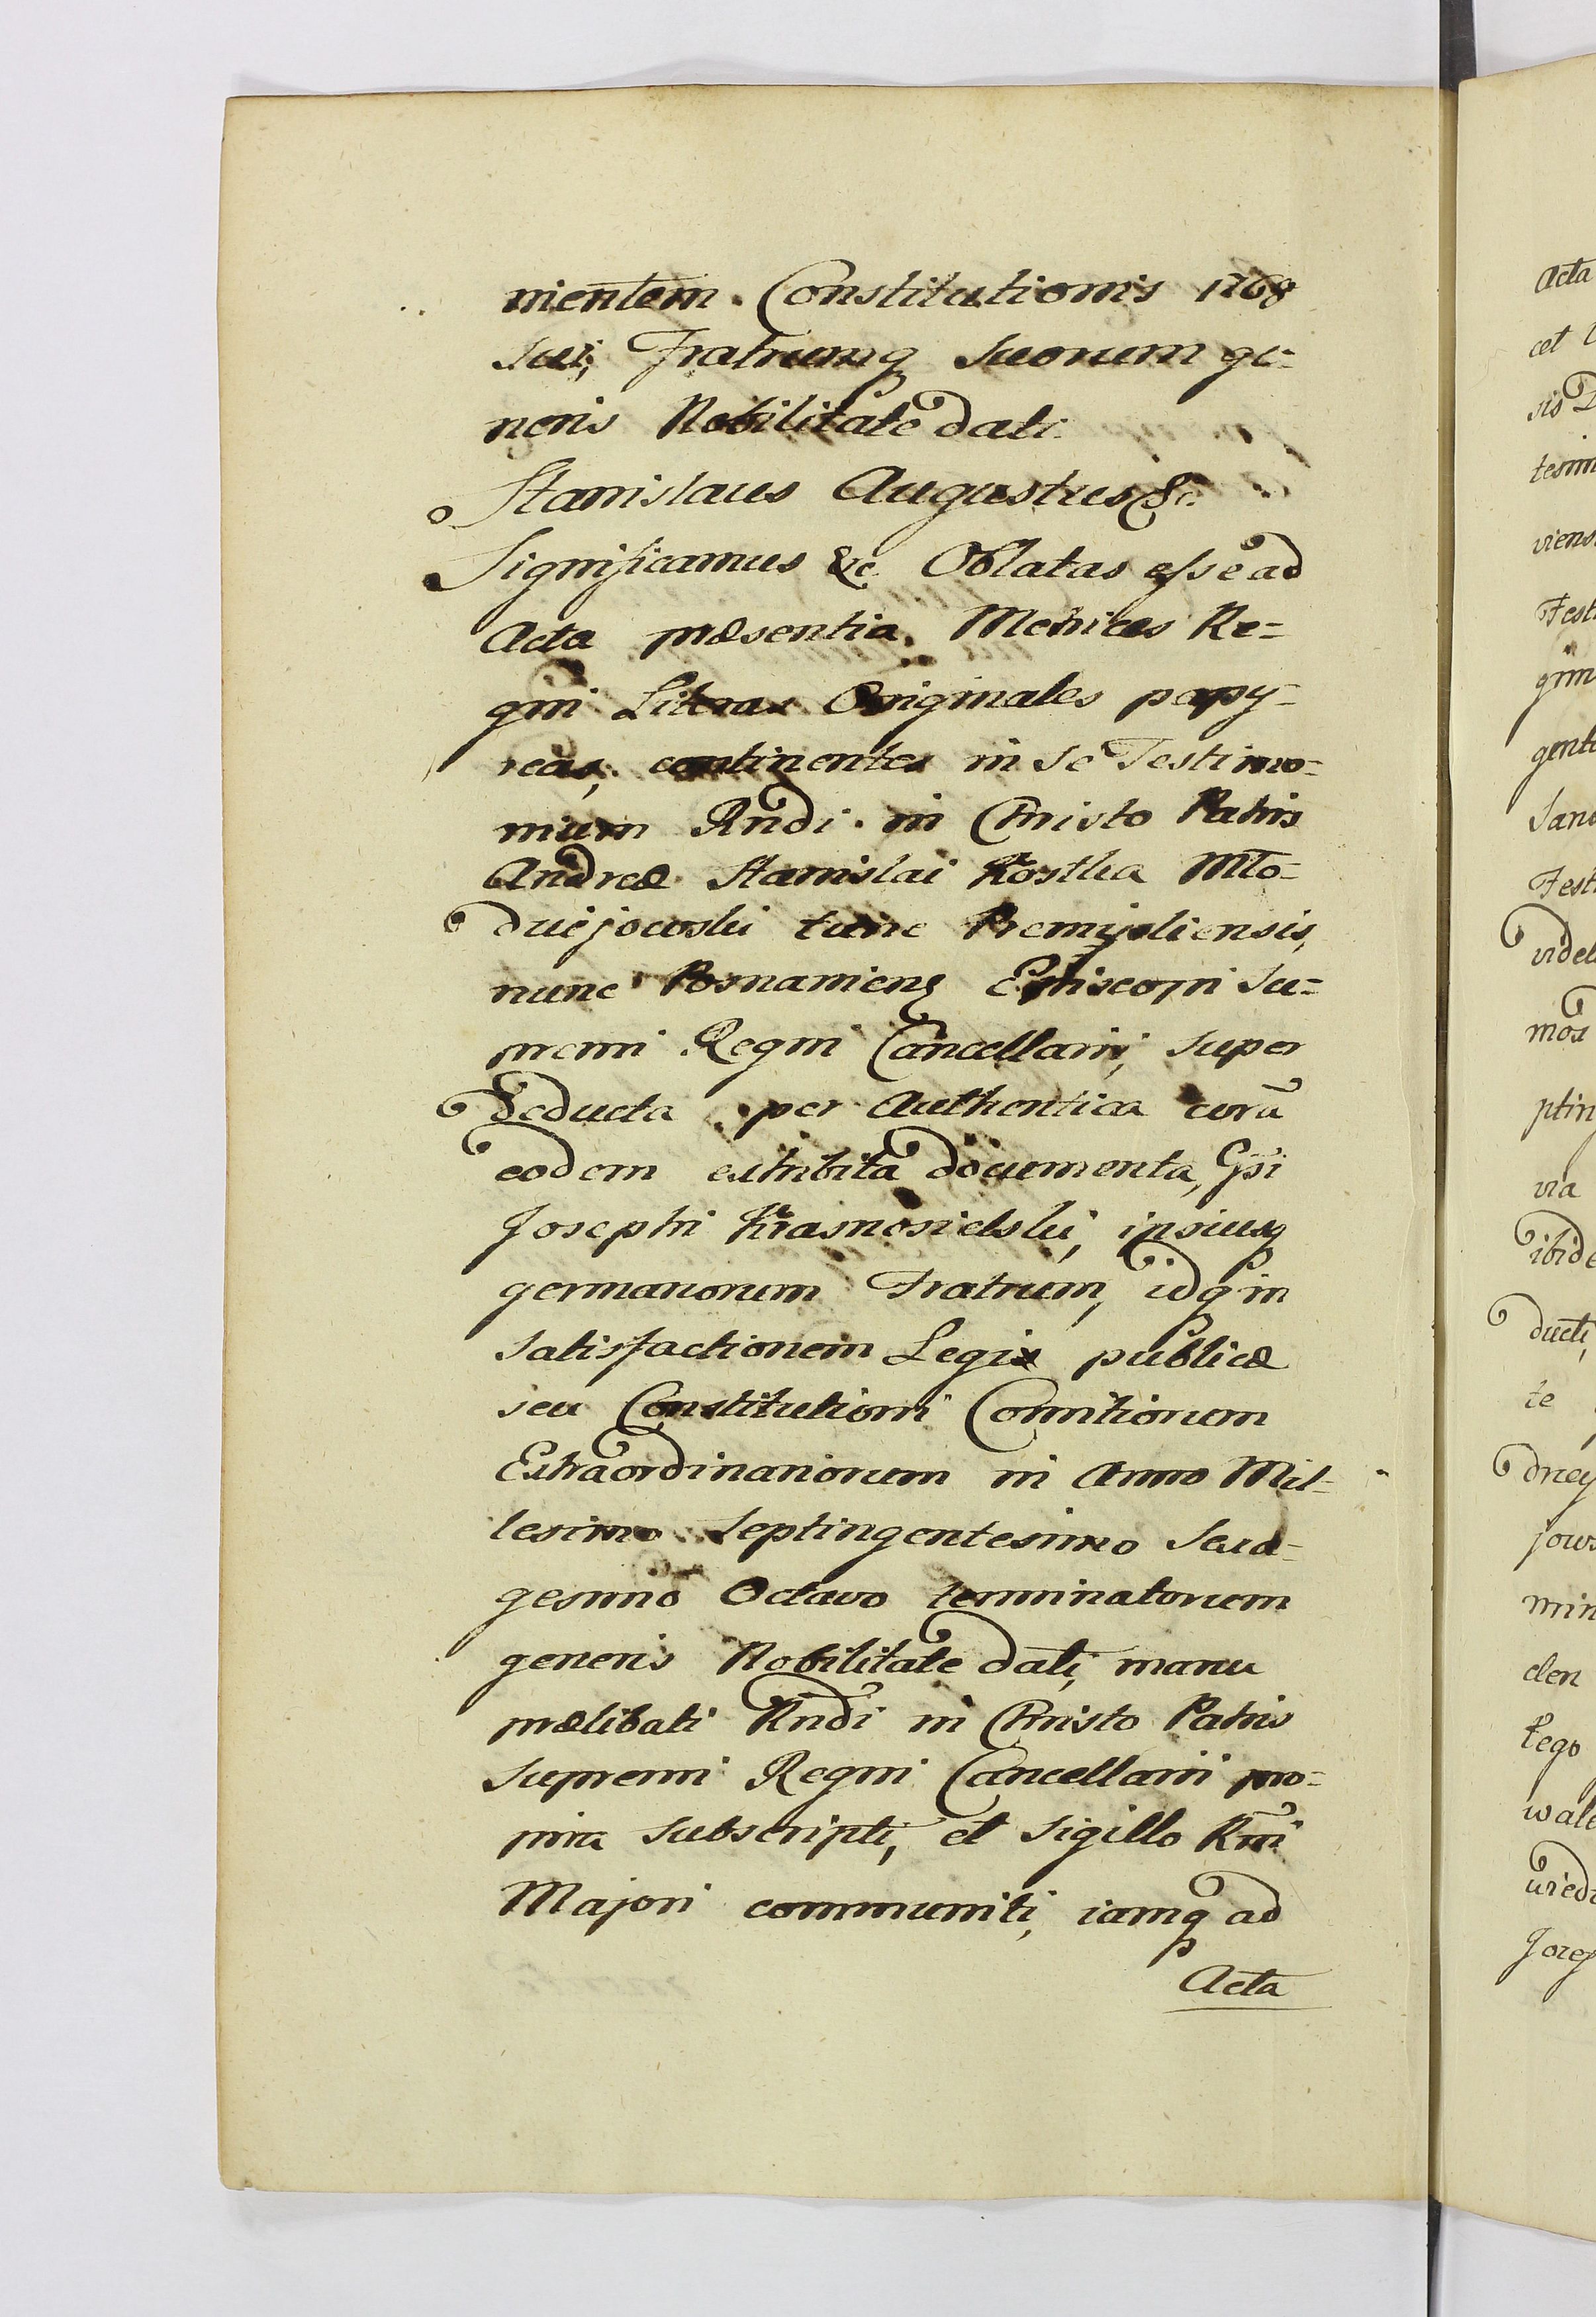 nientem Constitutionis 1768
sui, Fratrumq suorum ge-
neris Nobilitate dati.
Stanislaus Augustus &c.
Significamus &c. Oblatas esse ad
Acta præsentia Metrices Re-
gni Literas Originales papy-
reas, continentes in se Testimo-
nium Rndi in Christo Patris
Andreæ Stanislai Kostka Mło-
dziejowski tunc Premisliensis,
nunc Posnaniens Episcopi Su-
premi Regni Cancellarii, super
deducta per Authentica corā
eodem exhibita documenta, Gsi
Josephi Krasnosielski, ipsiusq
germanorum Fratrum, idq in
satisfactionem Legis publicæ
seu Constitutioni Comitiorum
Extraordinariorum in Anno Mil-
lesimo Septingentesimo Sexa-
gesimo Octavo terminatorum
generis Nobilitate dati, manu
prælibati Rndi in Christo Patris
Supremi Regni Cancellarii pro-
pria subscripti, et Sigillo Rni
Majori communiti, iamq ad
Acta
Acta
tesim
viens
gente
ibide
ducti,
te
min
wale